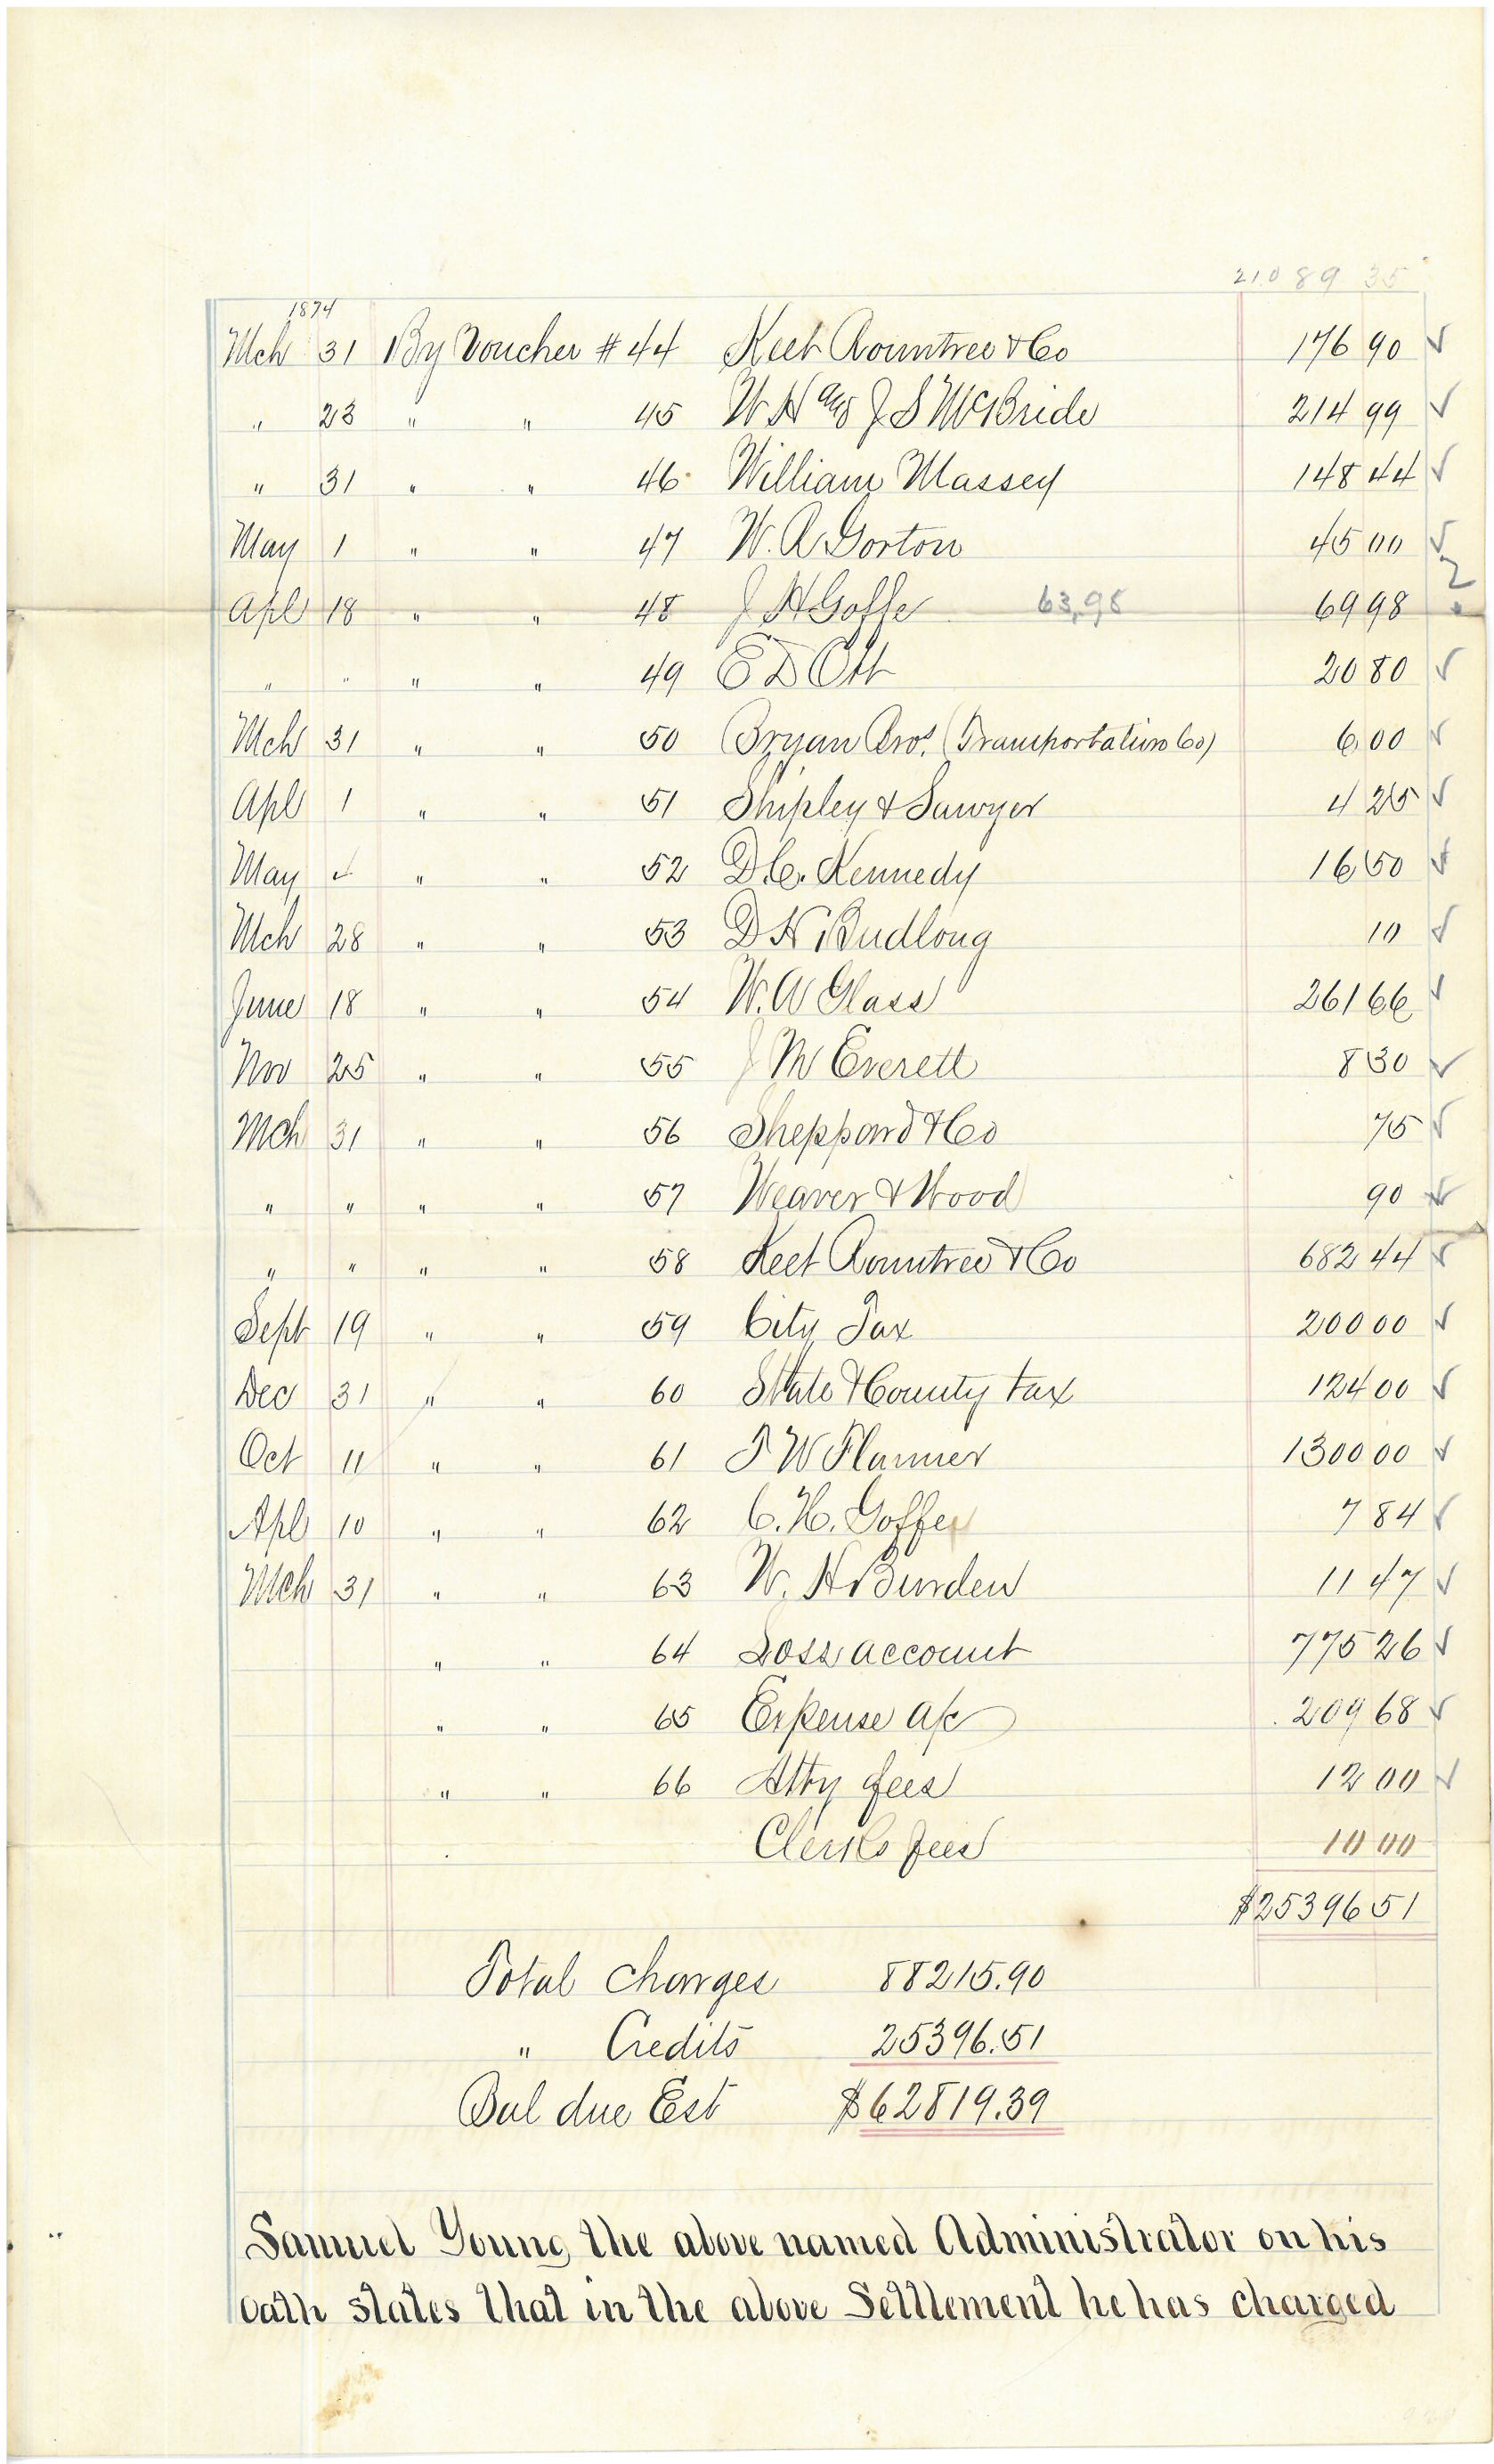 210 89 35
1874
Mch 31 By Voucher # 44 Keet Rountree & Co 176 90 ✓
" 23 " " 45 W H and J S McBride 214 99 ✓
" 31 " " 46 William Massey 148 44 ✓
May 1 " " 47 W. R Gorton 45 00 ✓
Apl 18 " " 48 J H Goffe 63,98 69 98 ?
" " " " 49 E D Ott 20 80 ✓
Mch 31 " " 50 Bryan Bros. (Transportation Co) 6 00 ✓
Apl 1 " " 51 Shipley & Sawyer 4 25 ✓
May ✓ " " 52 D C. Kennedy 16 50 ✓
Mch 28 " " 53 D H Budlong 10 ✓
June 18 " " 54 W. A Glass 261 66 ✓
Nov 25 " " 55 J M Everett 8 30 ✓
Mch 31 " " 56 Sheppard & Co 75 ✓
" " " " 57 Weaver & Wood 90 ✓
" " " " 58 Keet Rountree & Co 682 44 ✓
Sept 19 " " 59 City Tax 200 00 ✓
Dec 31 " " 60 State & County tax 124 00 ✓
Oct 11 " " 61 T W Flanner 1300 00 ✓
Apl 10 " " 62 C. H. Goffe 7 84 ✓
Mch 31 " " 63 W. H Burden 11 47 ✓
" " 64 Loss account 775 26 ✓
" " 65 Expense a/c 209 68 ✓
" " 66 Atty fees 12 00 ✓
Clerks fees 10 00
$25396 51
Total Charges 88215.90
" Credits 25396.51
Bal due Est $62819.39
Samuel Young the above named Administrator on his
oath states that in the above Settlement he has charged